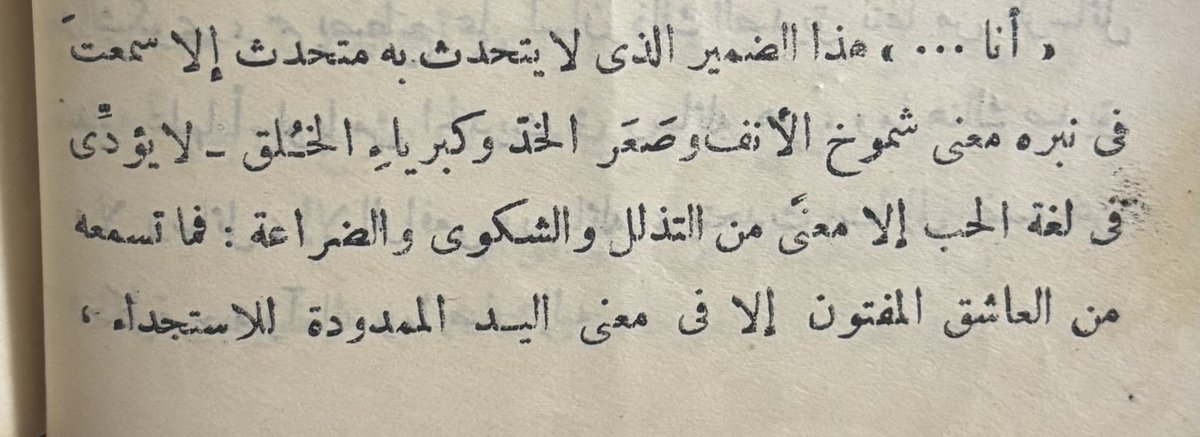 « أنا ... » هذا الضمير الذى لا يتحدث به متحدث إلا سمعتَ
فى نبره معنى شموخ الأنف وصَعَر الخدّ وكبرياءِ الخُـلق ــ لا يؤدِّى
فى لغة الحب إلا معنًى من التذلل والشكوى والضراعة : فما تسمعه
من العاشق المفتون إلا فى معنى اليــد الممدودة للاستجداء ،